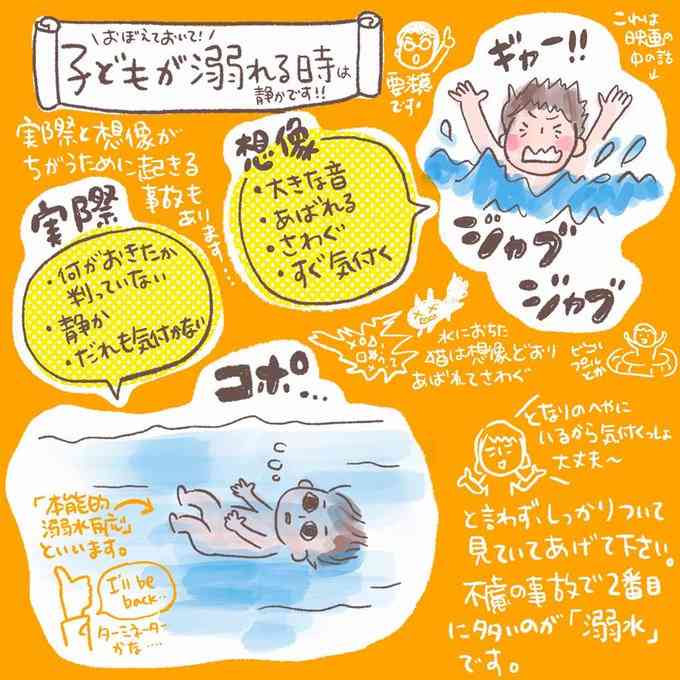 おぼえておいて!
子どもが溺れる時は
静かです!!
要領
です。
これは
映画の
中の話
ギャー!!
実際と想像が
ちがうために起きる
事故も
あります…
想像
・大きな音
・あばれる
・さわぐ
・すぐ気付く
実際
・何がおきたか
判っていない
・静か
・だれも気付かない
ジャブ
ジャブ
水におちた
猫は想像どおり
あばれてさわぐ
ビニール
プール
とか
コポ…
「本能的
溺水反応」
といいます。
I'll be
back..
ターミネーター
かな….
となりのへやに
いるから気付くっしょ
大丈夫〜
と言わず、しっかりついて
見ていてあげて下さい。
不慮の事故で2番目
に多いのが「溺水」
です。